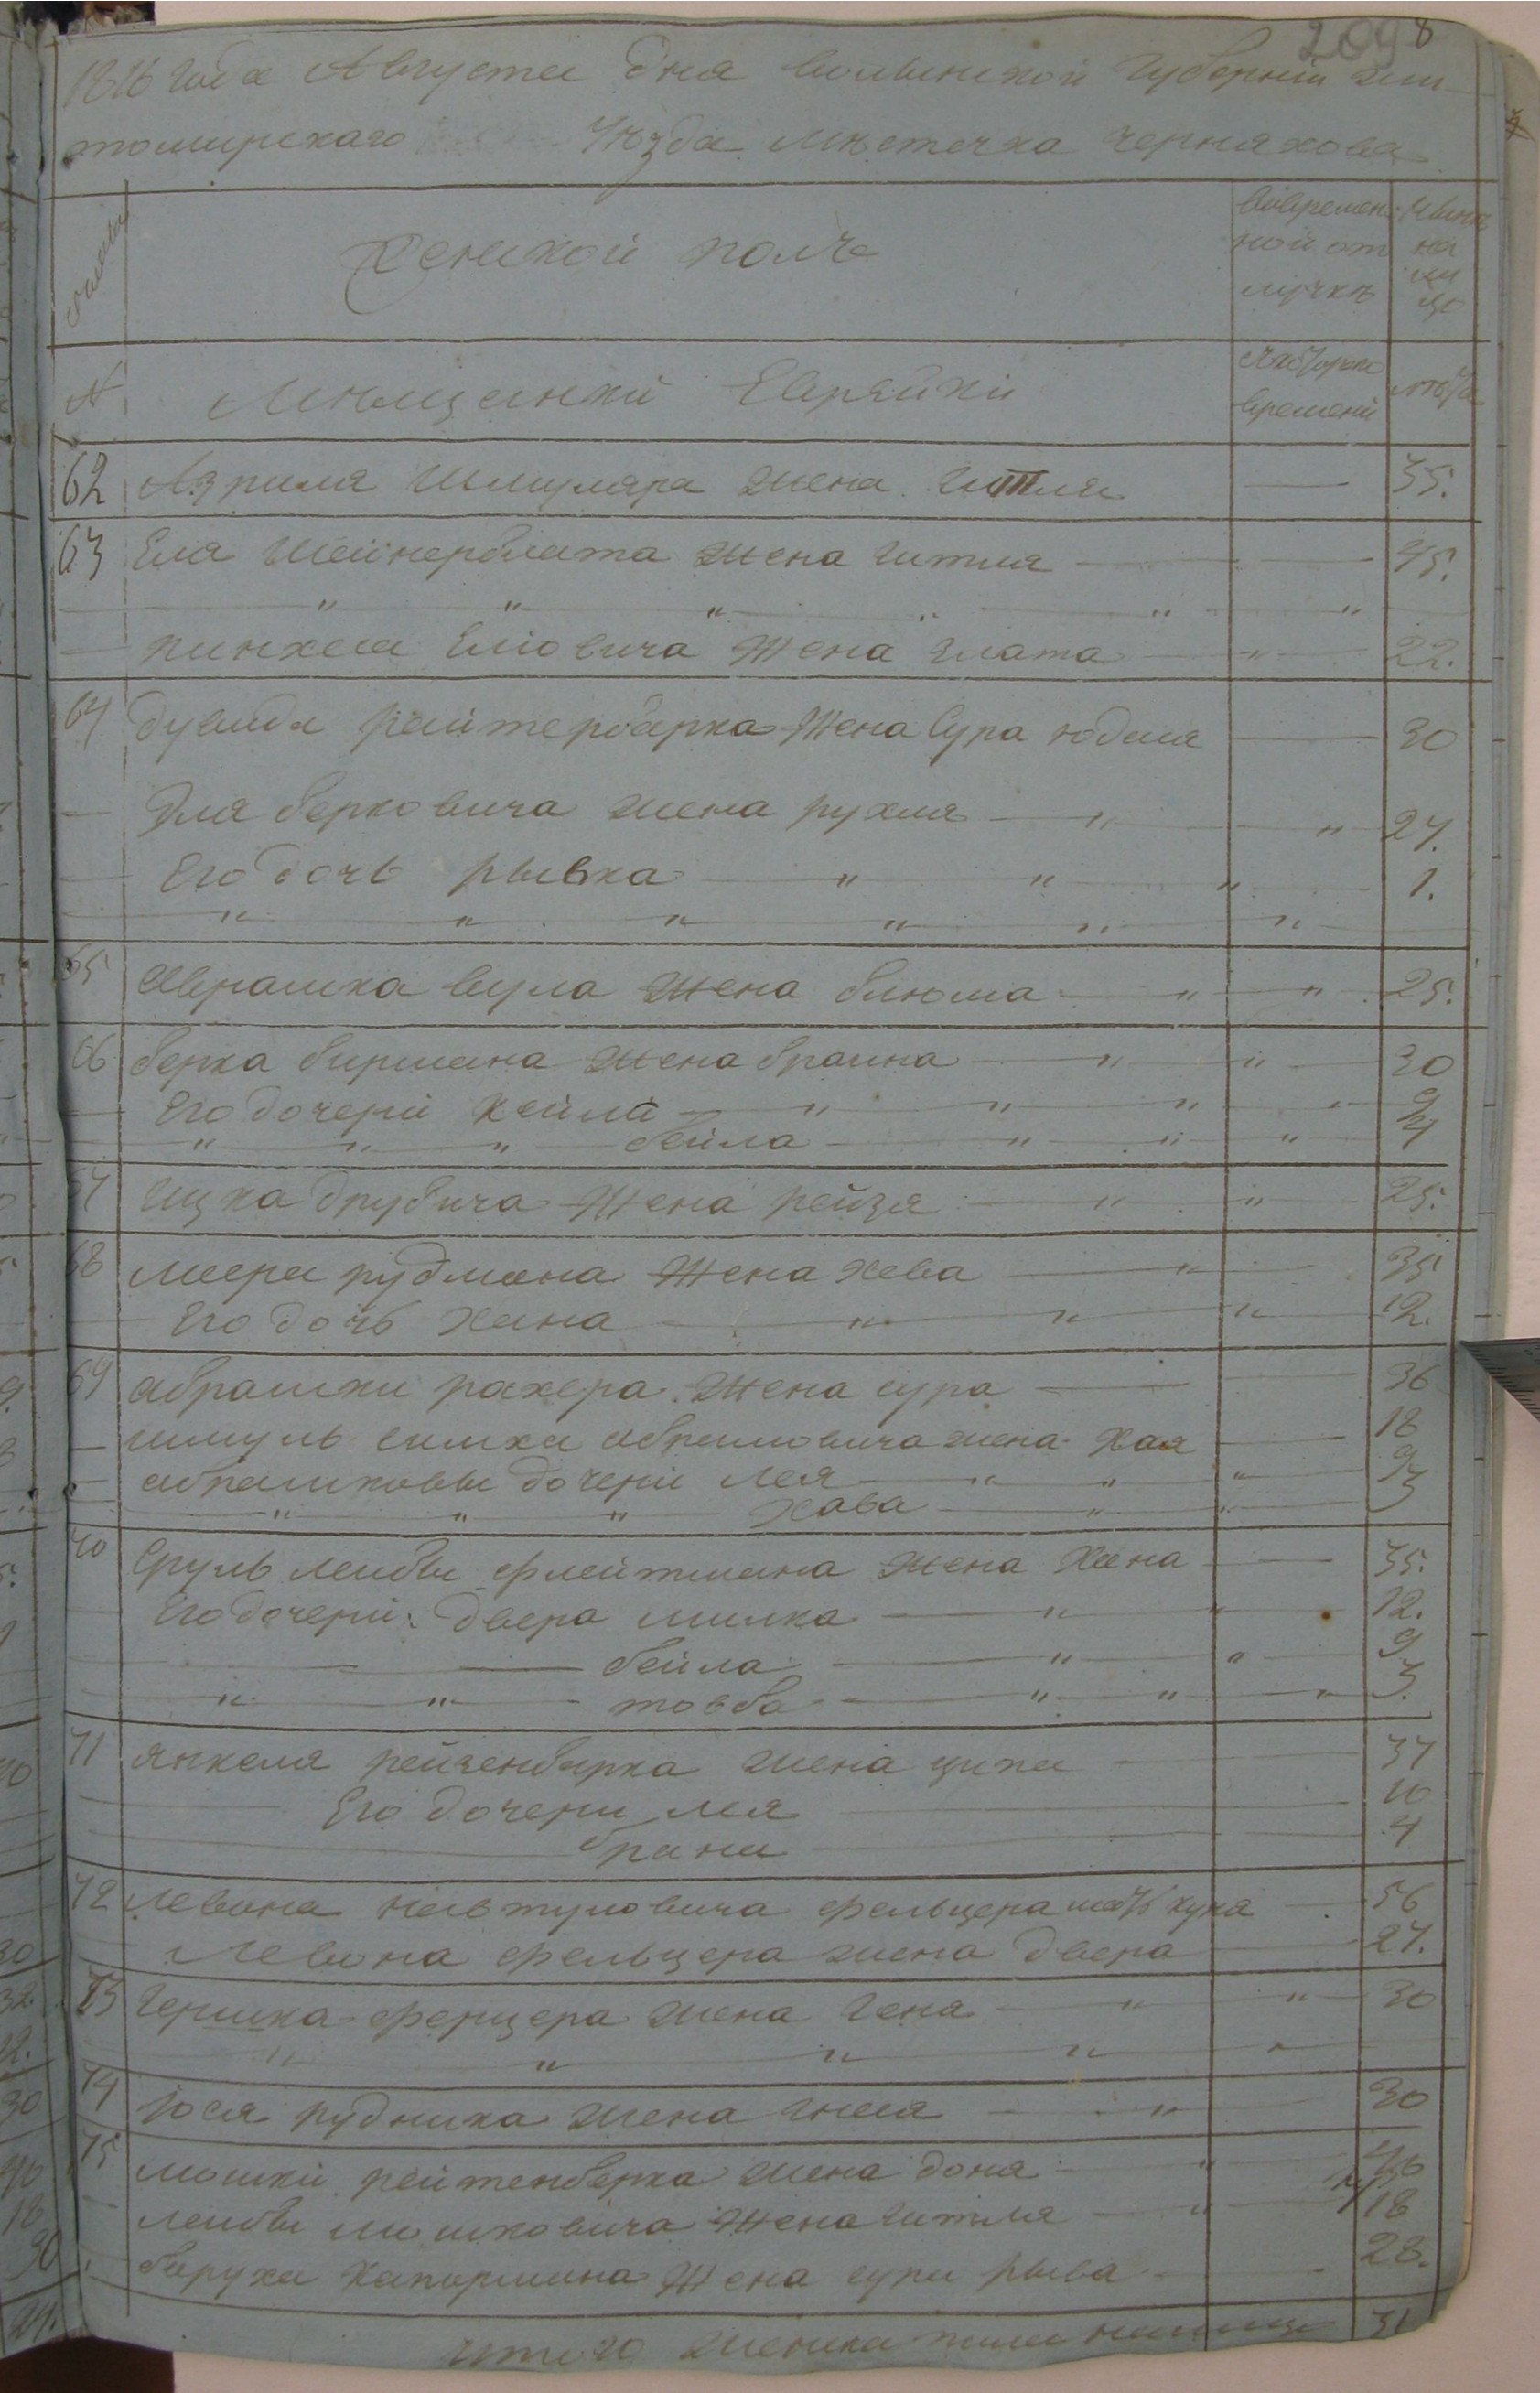 209 8
1816 года Августа дня волынской губерніи жи-
томирскаго Уѣзда мѣстечка черняхова
женской полъ
Вовремен-
ной от
лучкѣ
Нынѣ
на
ли
цо
№
Мѣщанки Еврейки
времени
лѣта
62 Азриля Шмуляра жена гитля 35.
63 Еля Шейнерблата жена гитля 45.
пинхаса Еліовича жена злата 22.
64 дувида райтербарка жена Сура юдася 30
Эля берковича жена рухля 27.
Его дочь рывка 1.
65 Аврашка вула жена блюма 25.
66 берка бирмана жена браина 30
Его дочери Хейла 9
бейла 4
67 Ицка друбича жена рейзя 25.
68 меера рудмана жена хева 35
Его дочь хана 12.
69 абрашки рахера жена сура 36
шмуль симха абрамовича жена Хая 18
абрашковы дочери лея 9
хава 3
70 Сруль лейбы флейтмана жена Хана 35.
Его дочери: двера милка 12.
бейла 9
товба 3.
71 янкеля рейзенбарка жена ципа 37
Его дочери лея 10
брана 4
72 левона невтуловича фельцера 56
Левона фельцера жена двера 27.
73 Гершка ферцера жена гена 30
74 Іося рудника жена гнеся 30
75 мошки рейтенберка жена доня 46
лейбы мошковича жена гитля 18
баруха жена сура рыва 28.
итого женска пола 51